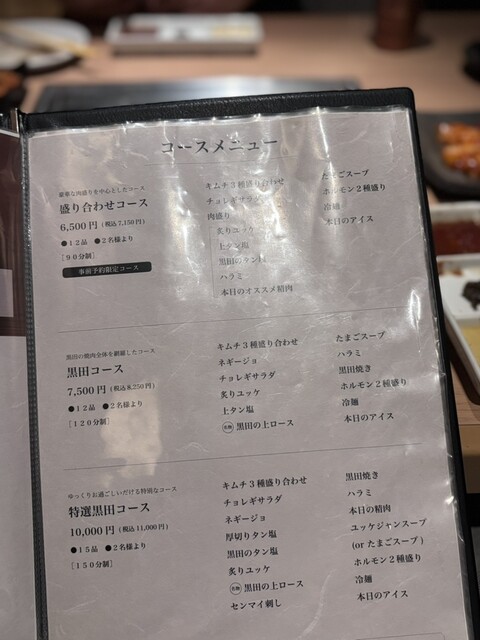 コースメニュー
豪華な肉盛りを中心としたコース
盛り合わせコース
6,500円（税込7,150円）
●12品 ●2名様より
［90分制］
事前予約限定コース
キムチ3種盛り合わせ
チョレギサラダ
肉盛り
炙りユッケ
上タン塩
黒田のタン塩
ハラミ
本日のオススメ精肉
たまごスープ
ホルモン2種盛り
冷麺
本日のアイス
黒田の焼肉全体を網羅したコース
黒田コース
7,500円（税込8,250円）
●12品 ●2名様より
［120分制］
キムチ3種盛り合わせ
ネギージョ
チョレギサラダ
炙りユッケ
上タン塩
黒田の上ロース
たまごスープ
ハラミ
黒田焼き
ホルモン2種盛り
冷麺
本日のアイス
ゆっくりお過ごしいただける特別なコース
特選黒田コース
10,000円（税込11,000円）
●15品 ●2名様より
［150分制］
キムチ3種盛り合わせ
チョレギサラダ
ネギージョ
厚切りタン塩
黒田のタン塩
炙りユッケ
黒田の上ロース
センマイ刺し
黒田焼き
ハラミ
本日の精肉
ユッケジャンスープ
(or たまごスープ)
ホルモン2種盛り
冷麺
本日のアイス